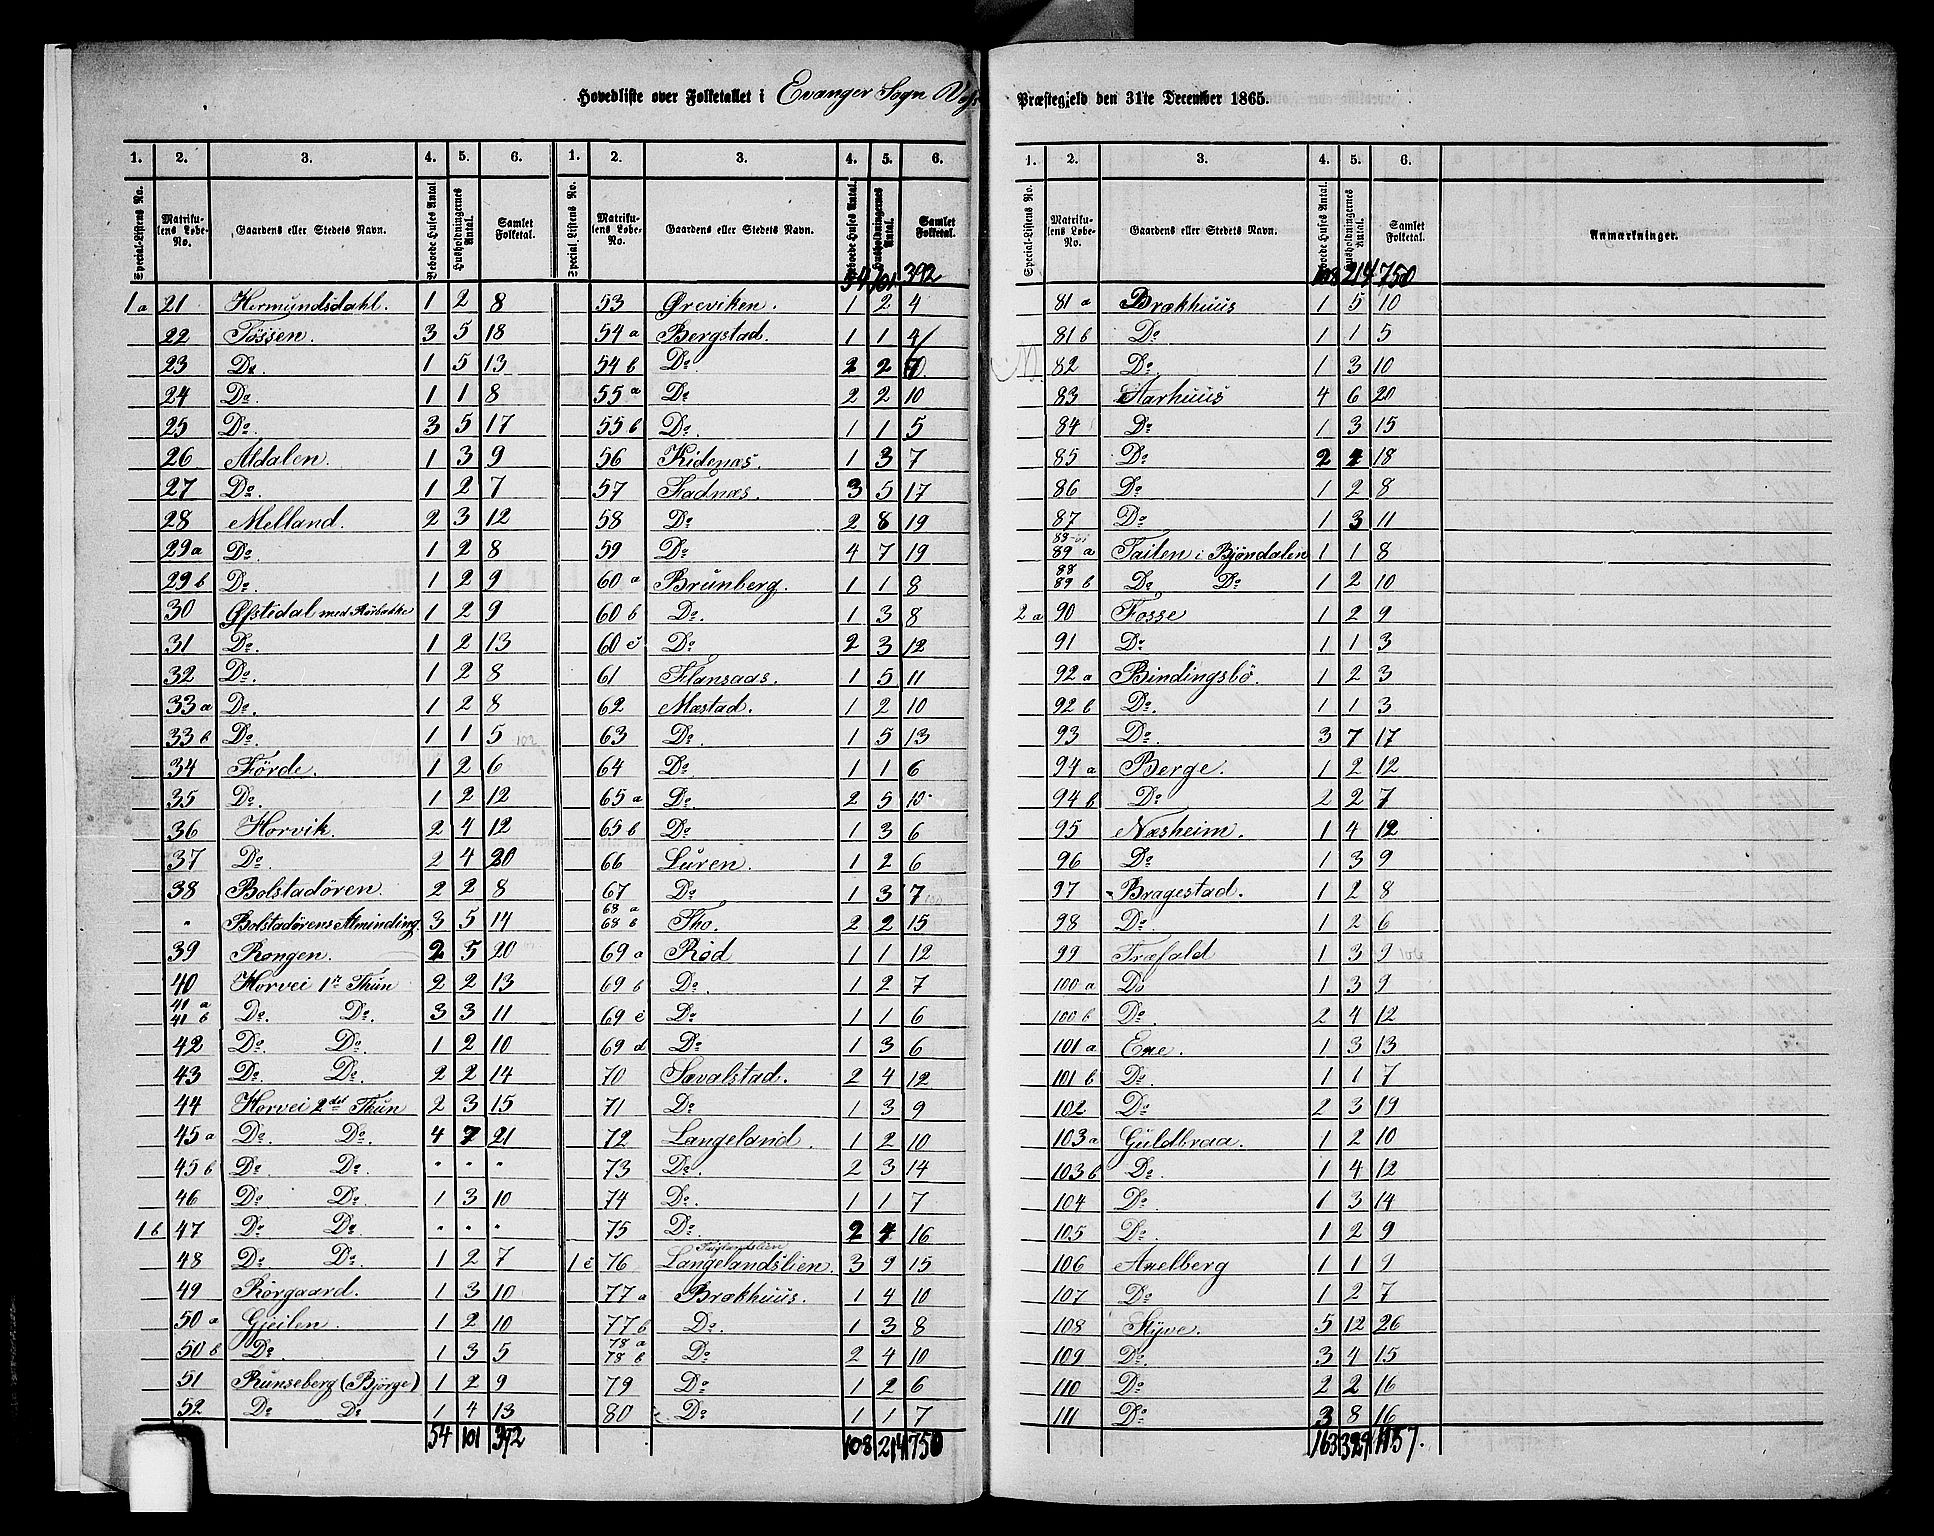 Hovedliste over Folketallet i Evanger Sogn Præstegjeld den 31te December 1865.
1. 2. 3. 4. 5. 6. 1. 2. 3. 4. 5. 6.
Special-Listens No. Matrikulens Løbe-No. Gaardens eller Stedets Navn. Beboede Huses Antal Husholdningernes Antal. Samlet Folketal. Special-Listens No. Matrikulens Løbe-No. Gaardens eller Stedets Navn. Beboede Huses Antal. Husholdningernes Antal. Samlet Folketal.
54 101 392
1a 21 Hermundsdahl. 1 2 8 53 Øreviken. 1 2 4
22 Fössen. 3 5 18 54a Bergstad. 1 1 4
23 Do. 1 5 13 54b Do. 2 2
24 Do. 1 1 8 55a Do. 2 2 10
25 Do. 3 5 17 55b Do. 1 1 5
26 Aldalen. 1 3 9 56 Kidenæs. 1 3 7
27 Do. 1 2 7 57 Fadnæs. 3 5 17
28 Melland. 2 3 12 58 Do. 2 8 19
29a Do. 1 2 8 59 Do. 4 7 19
29b Do. 1 2 9 60a Brunberg. 1 1 8
30 Øfstedal med 1 2 9 60b Do. 1 3 8
31 Do. 1 2 13 60c Do. 2 3 12
32 Do. 1 2 8 61 Flansaas. 1 5 11
33a Do. 1 2 8 62 Mæstad. 1 2 10
33b Do. 1 1 5 102 63 Do. 1 5 13
34 Förde. 1 2 6 64 Do. 1 1 6
35 Do. 1 2 12 65a Do. 2 5 10
36 Horvik. 2 4 12 65b Do. 1 3 6
37 Do. 2 4 20 66 Luren. 1 2 6
38 Bolstadören. 2 2 8 67 Do. 1 3 7
" Bolstadörens Alminding. 3 5 14 68a 68b Tho. 2 2 15
39 Rongen. 2 5 20 69a Röd 1 1 12
40 Horvei 1te Thun 2 2 13 69b Do. 1 2 7
41a 41b Do. Do. 3 3 11 69c Do. 1 1 6
42 Do. Do. 1 2 10 69d Do. 1 3 6
43 Do. Do. 2 2 14 70 Sævalstad. 2 4 12
44 Horvei 2det Thun 2 3 15 71 Do. 1 3 9
45a Do. Do. 4 7 21 72 Langeland. 1 2 10
45b Do. Do. " " " 73 Do. 2 3 14
46 Do. Do. 1 3 10 74 Do. 1 1 7
1b 47 Do. Do. " " " 75 Do. 2 4 16
48 Do. Do. 1 2 7 1c 76 Langelandslien. 3 9 15
49 Rörgaard. 1 3 10 77a Brækhuus. 1 4 10
50a Gjeilen. 1 2 10 77b Do. 1 3 8
50b Do. 1 3 5 78a 78b Do. 2 4 10
51 Runseberg (Björge) 1 2 9 79 Do. 1 2 6
52 Do. Do. 1 4 13 80 Do. 1 1 7
54 101 392 108 214 750
1. 2. 3. 4. 5. 6.
Special-Listens No. Matrikulens Løbe-No. Gaardens eller Stedets Navn. Beboede Huses Antal. Husholdningernes Antal. Samlet Folketal. Anmærkninger.
108 214 750
81a Brækhuus 1 5 10
81b Do. 1 1 5
82 Do. 1 3 10
83 Aarhuus 4 6 20
84 Do. 1 3 15
85 Do. 2 4 18
86 Do. 1 2 8
87 Do. 1 3 11
89a Failen i Bjöndalen 1 1 8
88 89b Do. Do. 1 2 10
2a 90 Fosse 1 2 9
91 Do. 1 1 3
92a Bindingsbö. 1 2 3
92b Do. 1 1 3
93 Do. 3 7 17
94a Berge. 1 2 12
94b Do. 2 2 7
95 Næsheim. 1 4 12
96 Do. 1 3 9
97 Bragestad. 1 2 8
98 Do. 1 2 6
99 Træfald 1 3 9 106
100a Do 1 3 9
100b Do. 2 4 12
101a Exe. 1 3 13
101b Do. 1 1 7
102 Do. 2 3 19
103a Guldbraa. 1 2 10
103b Do. 1 4 12
104 Do. 1 3 14
105 Do. 1 2 9
106 Axelberg 1 1 9
107 Do. 1 2 7
108 Styve. 5 12 26
109 Do. 3 4 15
110 Do. 2 2 16
111 Do. 3 8 16
163 329 1157.